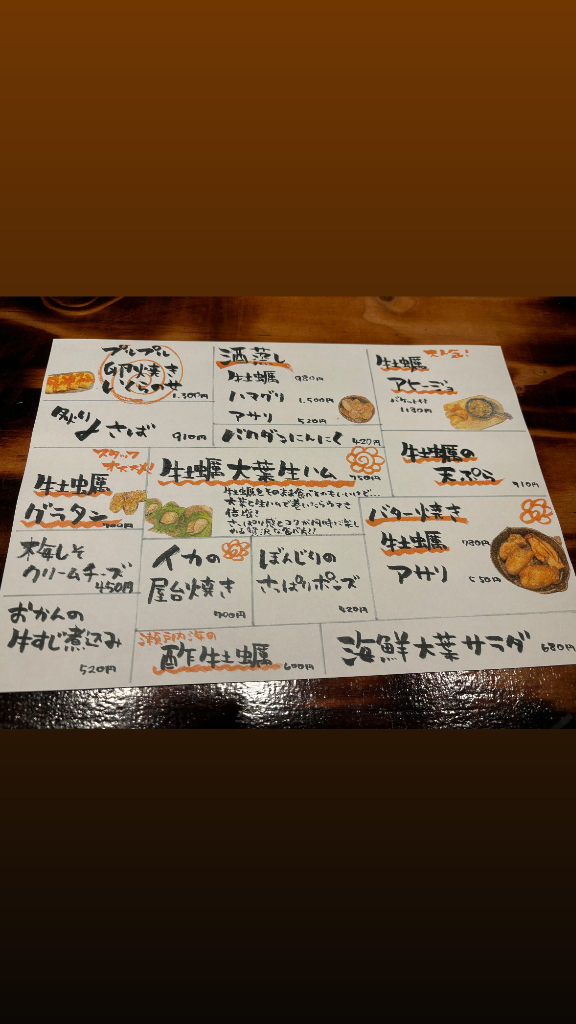 プルプル
卵焼き
いくらのせ
1,300円
さば
910円
酒蒸し
牡蠣 980円
ハマグリ 1,500円
アサリ 520円
バカダネにんにく 420円
牡蠣
アヒージョ
バケット付
1180円
スタッフ
オススメ!
牡蠣
グラタン
牡蠣大葉生ハム
950円
牡蠣をそのまま食べてもおいしいけど…
大葉と生ハムで巻いたらウマさ
倍増!
さっぱり感とコクが同時に楽し
める贅沢な食べ方!!
牡蠣の
天ぷら
910円
梅しそ
クリームチーズ
450円
イカの
屋台焼き
900円
ぼんじりの
さっぱりポン酢
420円
バター焼き
牡蠣 980円
アサリ 550円
おかんの
牛すじ煮込み
520円
瀬戸内海の
酢牡蠣 600円
海鮮大葉サラダ 680円